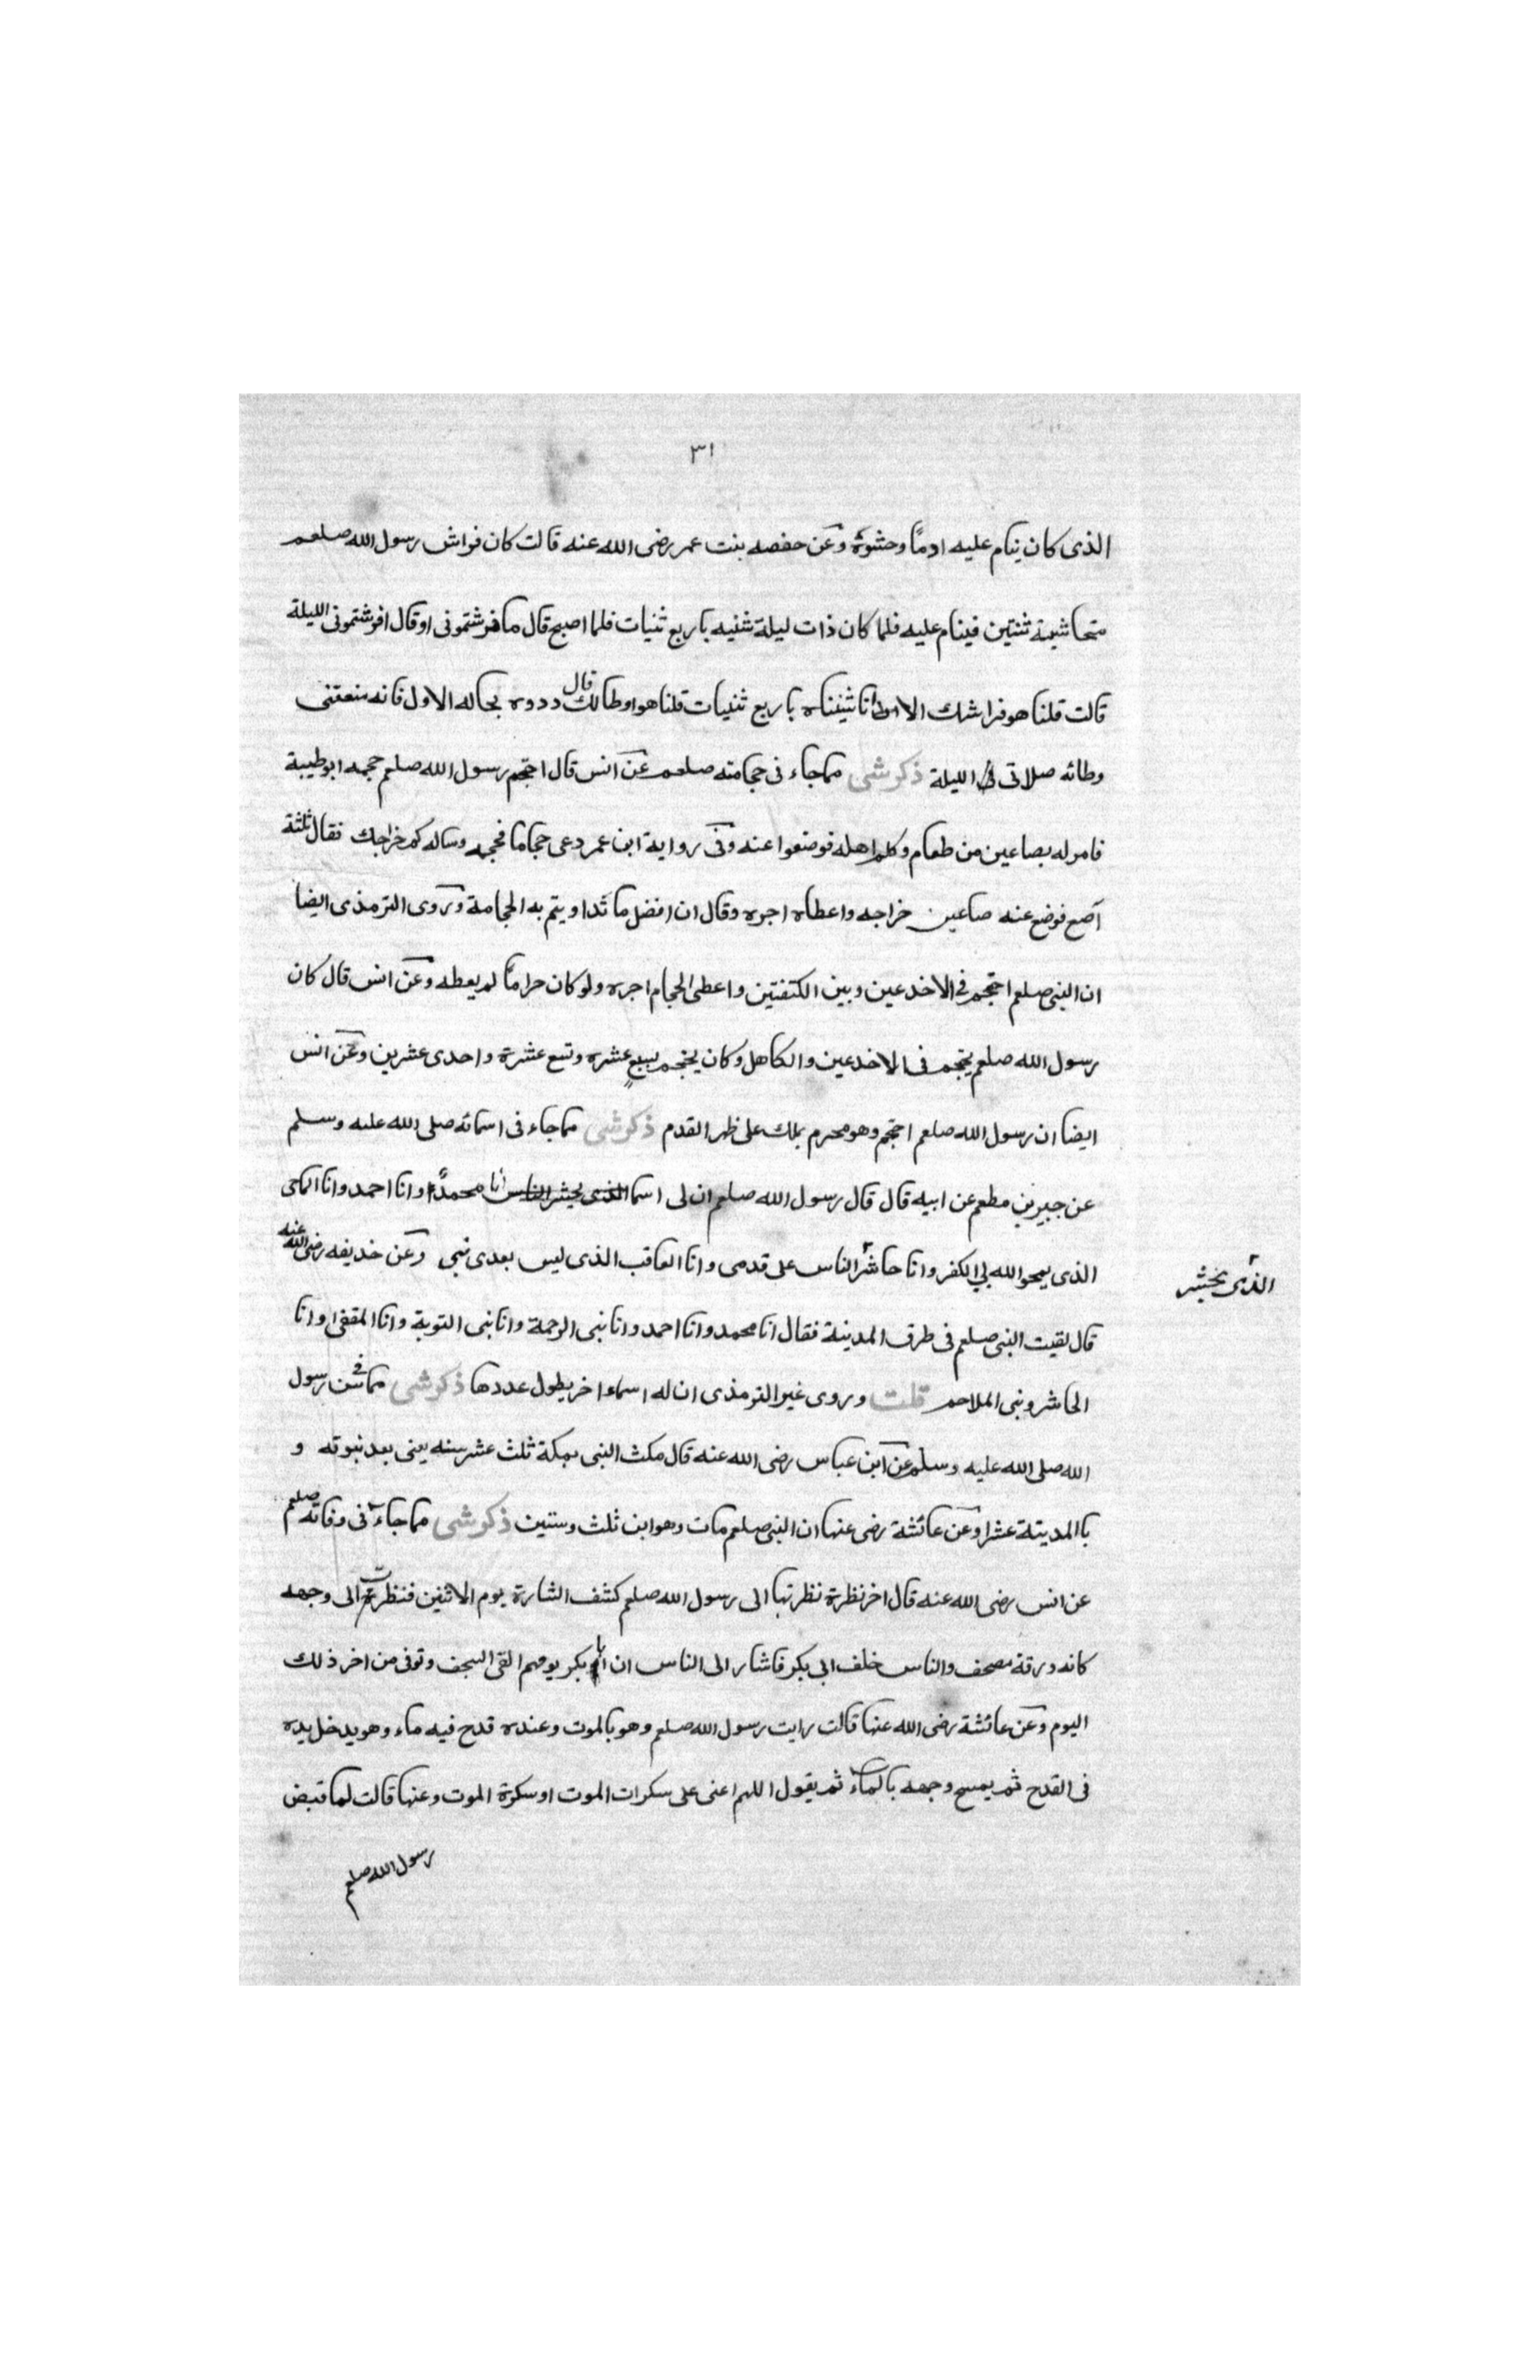 ٣١
الذى كان ينام عليه ادمًا وحشوه وعن حفصه بنت عمر رضى الله عنه قالت كان فراش رسول الله صلعم
ثنتين فينام عليه فلما كان ذات ليلة ثنيه باربع ثنيات فلما اصبح قال ما فرشتمونى او قال افرشتمونى الليلة
قالت قلنا هو فراشك الا انا ثنيناه باربع ثنيات قلنا هو اوطا لك قال ردوه بحاله الاول فانه منعتنى
وطائه صلاتى الليلة ذكر شى مما جاء فى حجامته صلعم عن انس قال احتجم رسول الله صلعم حجمه ابو طيبة
فامر له بصاعين من طعام وكلم اهله فوضعوا عنه وفى رواية ابن عمر دعى حجاما فحجمه وساله كم خراجك فقال ثلثة
آصع فوضع عنه صاعين خراجه واعطاه اجره وقال ان افضل ما تداويتم به الحجامة وروى الترمذى ايضا
ان النبى صلعم احتجم فى الاخدعين وبين الكتفتين واعطى الحجام اجره ولو كان حرامًا لم يعطه وعن انس قال كان
رسول الله صلعم يحتجم فى الاخدعين والكاهل وكان يحتجم بسبع عشره وتسع عشرة واحدى عشرين وعن انس
ايضا ان رسول الله صلعم احتجم وهو محرم بملك على ظهر القدم ذكر شى مما جاء فى اسمائه صلى الله عليه وسلم
عن جبير بن مطعم عن ابيه قال قال رسول الله صلعم ان لى اسما الذى يحشر الناس انا محمدًا وانا احمد وانا الماحى
الذى يمحو الله بى الكفر وانا حاشر الناس على قدمى وانا العاقب الذى ليس بعدى نبى وعن خديفه رضى الله عنه
الذى يحشر
قال لقيت النبى صلعم فى طرق المدينة فقال انا محمد وانا احمد وانا نبى الرحمة وانا نبى التوبة وانا المقفى وانا
الحاشر ونبى الملاحم قلت وروى غير الترمذى ان له اسماء اخر يطول عددها ذكر شى مما فى سن رسول
الله صلى الله عليه وسلم عن ابن عباس رضى الله عنه قال مكث النبى بمكة ثلث عشر سنه يعنى بعد نبوته و
باالمدينة عشرا وعن عائشة رضى عنها ان النبى صلعم مات وهو ابن ثلث وستين ذكر شى مما جاء فى وفاته صلعم
عن انس رضى الله عنه قال اخر نظرة نظرتها الى رسول الله صلعم كشف الشارة يوم الاثنين فنظرت الى وجهه
كانه ورقة مصحف والناس خلف ابى بكر فاشار الى الناس ان ابا بكر يومهم القى السجف وتوفى من اخر ذلك
اليوم وعن عائشة رضى الله عنها قالت رايت رسول الله صلعم وهو بالموت وعنده قدح فيه ماء وهو يدخل يده
فى القدح ثم يمسح وجهه بالماء ثم يقول اللهم اعنى على سكرات الموت او سكرة الموت وعنها قالت لما قبض
رسول الله صلعم